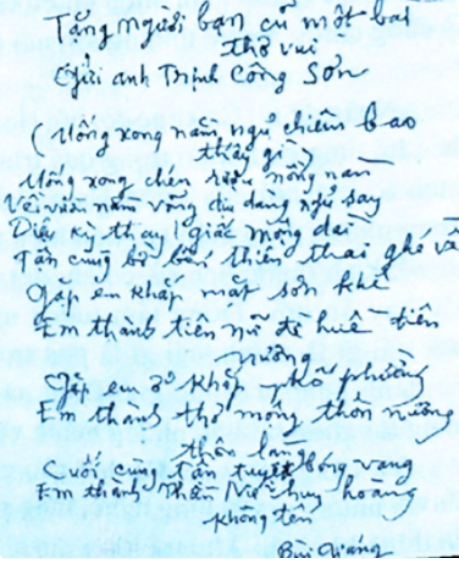 Tặng người bạn cũ một bài
thơ vui
Gửi anh Trịnh Công Sơn
(Uống xong nằm ngủ chiêm bao
thấy gì)
Uống xong chén rượu nồng nàn
Về viên nằm võng dịu dàng ngủ say
Diệu kỳ thay! giấc mộng dài
Tận cùng bờ bến thiên thai ghé về
Gặp em khắp mặt sơn khê
Em thành tiên nữ đề huề tiên
nương
Gặp em ở khắp phố phường
Em thành thơ mộng thôn nương
thôn làng
Cuối cùng tân tuyệt bóng vang
Em thành Thần Nữ huy hoàng
không tên
Bùi Giáng